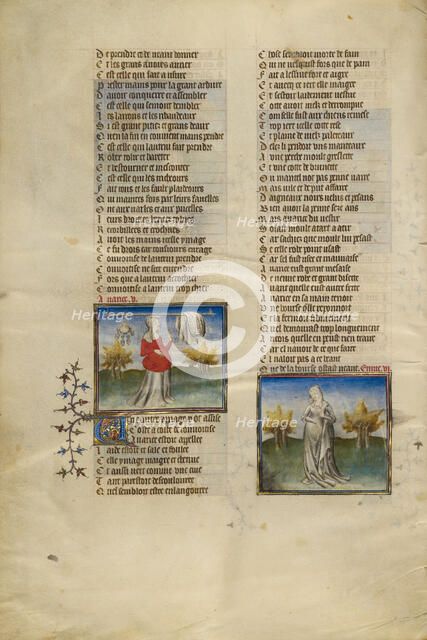 De prendre et de neant donner
Et les grans avoirs auner
C est celle qui fait a usure
Prester mains pour la grant ardure
D avoir conquerre et assembler
C est celle qui semont d embler
Les larrons et les ribaudeaux
Si est grant pechez et grans deaux
Qu en la fin en convient mains pendre
C est celle qui fait l autrui prendre
Rober tolir et bareter
Et
C est celle qui les tricheours
Fait tous et les faulx plaideurs
Qui maintes fois par leurs favelles
Ont aux varles et aux pucelles
Leurs droites
Recorbillees et crochues
Avoit les mains celle ymage
C est drois car tousjours enrage
Couvoitise de l autrui prendre
Couvoitise ne scet entendre
Fors que a l autrui acrochier
Couvoitise a l autrui trop chier
Avarice. v.
Une autre ymage y ot assise
Coste a coste de couvoitise
Avarice estoit appellee
Laide estoit et sale et foulee
Celle ymage maigre et chetive
Et aussi vert comme une cive
Tant par estoit descoulouree
Qu el sembloit estre enlangouree
Chose sembloit morte de fain
Qui ne vesquist fors que de pain
Fait a lessive fort et aigre
Et avecq ce iert elle maigre
Et s estoit laidement vestue
Cotte avoit viez et derompue
Com s elle fust aux chiens remese
Trop iert celle cotte rese
Et plaine de viez paleteaux
Delez li pendoit uns manteaux
A une perche moult greslette
Et une cotte de brunette
Ou mantel n ot pas penne vaire
Mais viez et de put affaire
D aigneaux noirs velus et pesans
Bien avoit la penne seze ans
Mais avarice du vestir
Se
Car sachez que moult lui pesast
Se celle robe point usast
Car s el fust usee et mauvaise
Avarice eust grant mesaise
De neuve robe et grant disette
Avant qu elle eust autre faicte
Avarice en sa main tenoit
Une bourse qu elle reponnoit
Et la fermoit si durement
Que demourast trop longuement
Aincois qu elle en peust rien traire
Car el n avoit de ce que faire
El n aloit pas a ce traiant
Que de la bourse ostast neant. Envie. vi.
Heritage
Heritage
Heritage
Heritage
Heritage
Heritage
Heritage
C